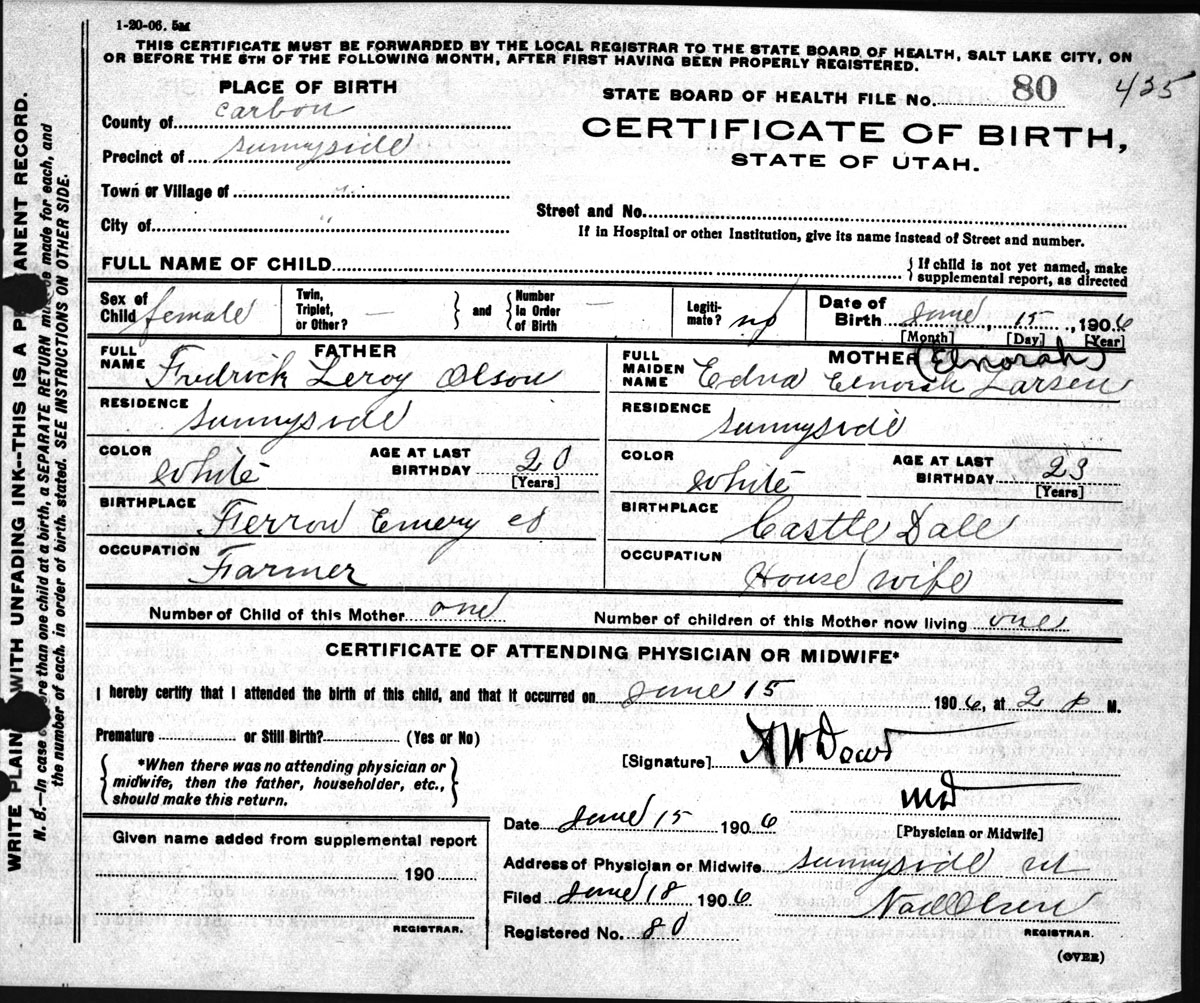 1-20-06. 5M
THIS CERTIFICATE MUST BE FORWARDED BY THE LOCAL REGISTRAR TO THE STATE BOARD OF HEALTH, SALT LAKE CITY, ON
OR BEFORE THE 5TH OF THE FOLLOWING MONTH, AFTER FIRST HAVING BEEN PROPERLY REGISTERED.
PLACE OF BIRTH
County of Carbon
Precinct of Sunnyside
Town or Village of "
City of "
STATE BOARD OF HEALTH FILE No. 80 435
CERTIFICATE OF BIRTH,
STATE OF UTAH.
Street and No.
If in Hospital or other Institution, give its name instead of Street and number.
FULL NAME OF CHILD
{If child is not yet named, make
supplemental report, as directed
Sex of Child female
Twin, Triplet, or Other? —
and
Number in Order of Birth —
Legitimate? no
Date of Birth June 15, 1906
[Month] [Day] [Year]
FATHER
FULL NAME Fredrick Leroy Olson
RESIDENCE Sunnyside
COLOR White
AGE AT LAST BIRTHDAY 20
[Years]
BIRTHPLACE Ferron Emery co
OCCUPATION Farmer
MOTHER (Elnorah)
FULL MAIDEN NAME Edna Elnorah Larsen
RESIDENCE Sunnyside
COLOR White
AGE AT LAST BIRTHDAY 23
[Years]
BIRTHPLACE Castle Dale
OCCUPATION House wife
Number of Child of this Mother one
Number of children of this Mother now living one
CERTIFICATE OF ATTENDING PHYSICIAN OR MIDWIFE*
I hereby certify that I attended the birth of this child, and that it occurred on June 15 1906, at 2 P M.
Premature or Still Birth? (Yes or No)
{*When there was no attending physician or
midwife, then the father, householder, etc.,
should make this return.}
[Signature] A W Dowd
MD
[Physician or Midwife]
Given name added from supplemental report
190
REGISTRAR.
Date June 15 1906
Address of Physician or Midwife Sunnyside ut
Filed June 18 1906
Olsen
REGISTRAR.
Registered No. 80
(OVER)
WRITE PLAINLY WITH UNFADING INK--THIS IS A PERMANENT RECORD.
N. B.—In case of more than one child at a birth, a SEPARATE RETURN must be made for each, and
the number of each, in order of birth, stated. SEE INSTRUCTIONS ON OTHER SIDE.